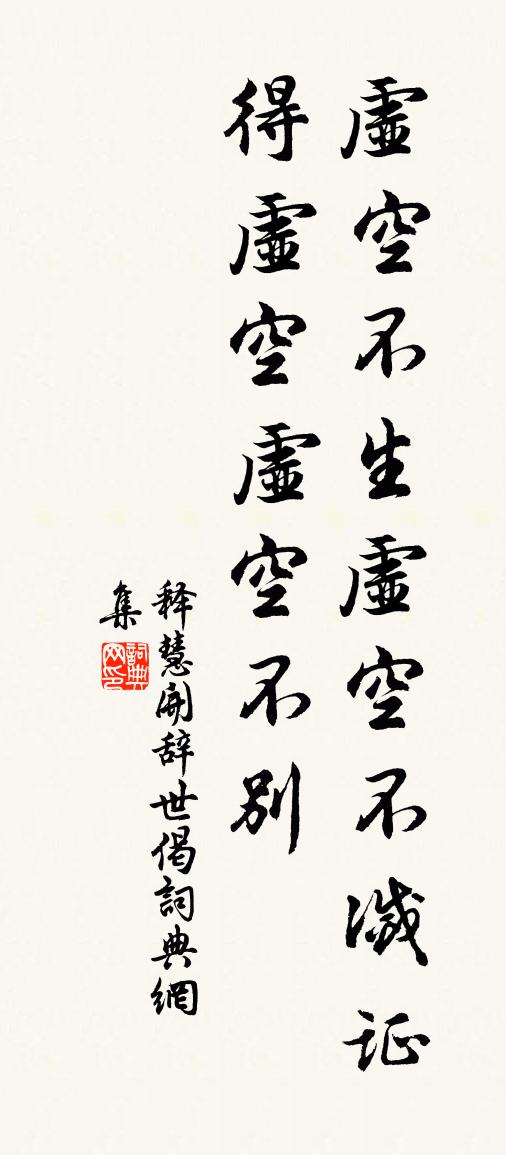 虛空不生虛空不滅证
得虛空虛空不别
释慧開辞世偈詞典網
集
詞典
网印